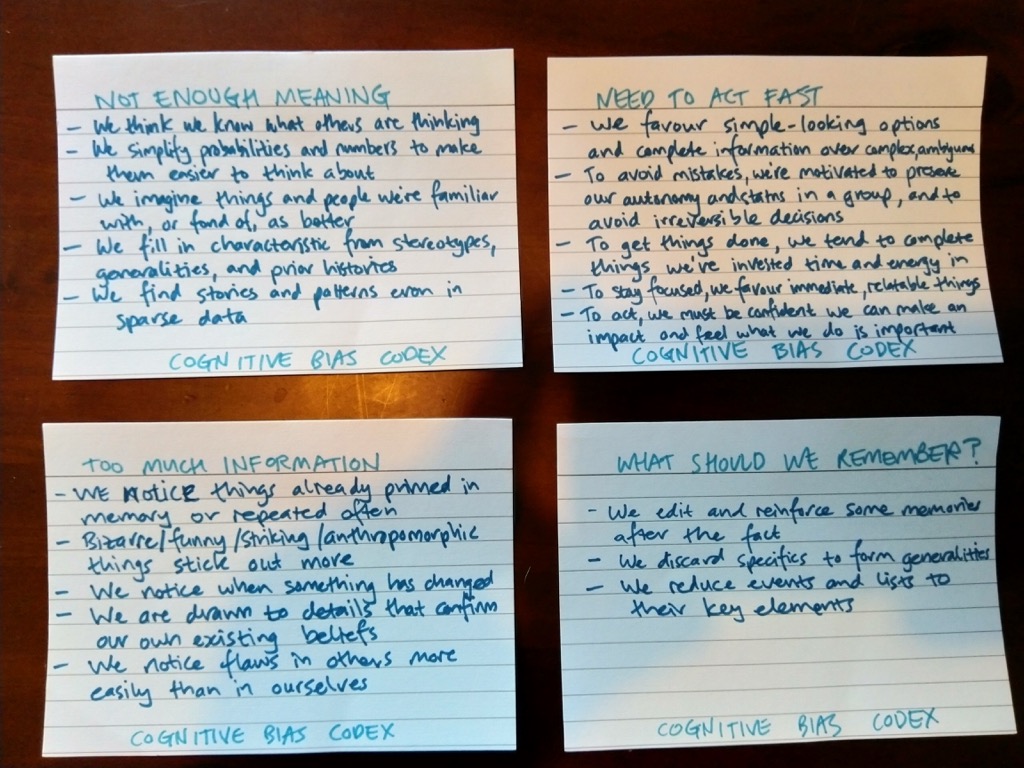 NOT ENOUGH MEANING
- We think we know what others are thinking
- We simplify probabilities and numbers to make
them easier to think about
- We imagine things and people we're familiar
with, or fond of, as better
- We fill in characteristic from stereotypes,
generalities, and prior histories
- We find stories and patterns even in
sparse data
COGNITIVE BIAS CODEX
NEED TO ACT FAST
- We favour simple-looking options
and complete information over complex, ambiguous
- To avoid mistakes, we're motivated to preserve
our autonomy and status in a group, and to
avoid irreversible decisions
- To get things done, we tend to complete
things we've invested time and energy in
- To stay focused, we favour immediate, relatable things
- To act, we must be confident we can make an
impact and feel what we do is important
COGNITIVE BIAS CODEX
TOO MUCH INFORMATION
- WE NOTICE things already primed in
memory or repeated often
- Bizarre/funny/striking/anthropomorphic
things stick out more
- We notice when something has changed
- We are drawn to details that confirm
our own existing beliefs
- We notice flaws in others more
easily than in ourselves
COGNITIVE BIAS CODEX
WHAT SHOULD WE REMEMBER?
- We edit and reinforce some memories
after the fact
- We discard specifics to form generalities
- We reduce events and lists to
their key elements
COGNITIVE BIAS CODEX